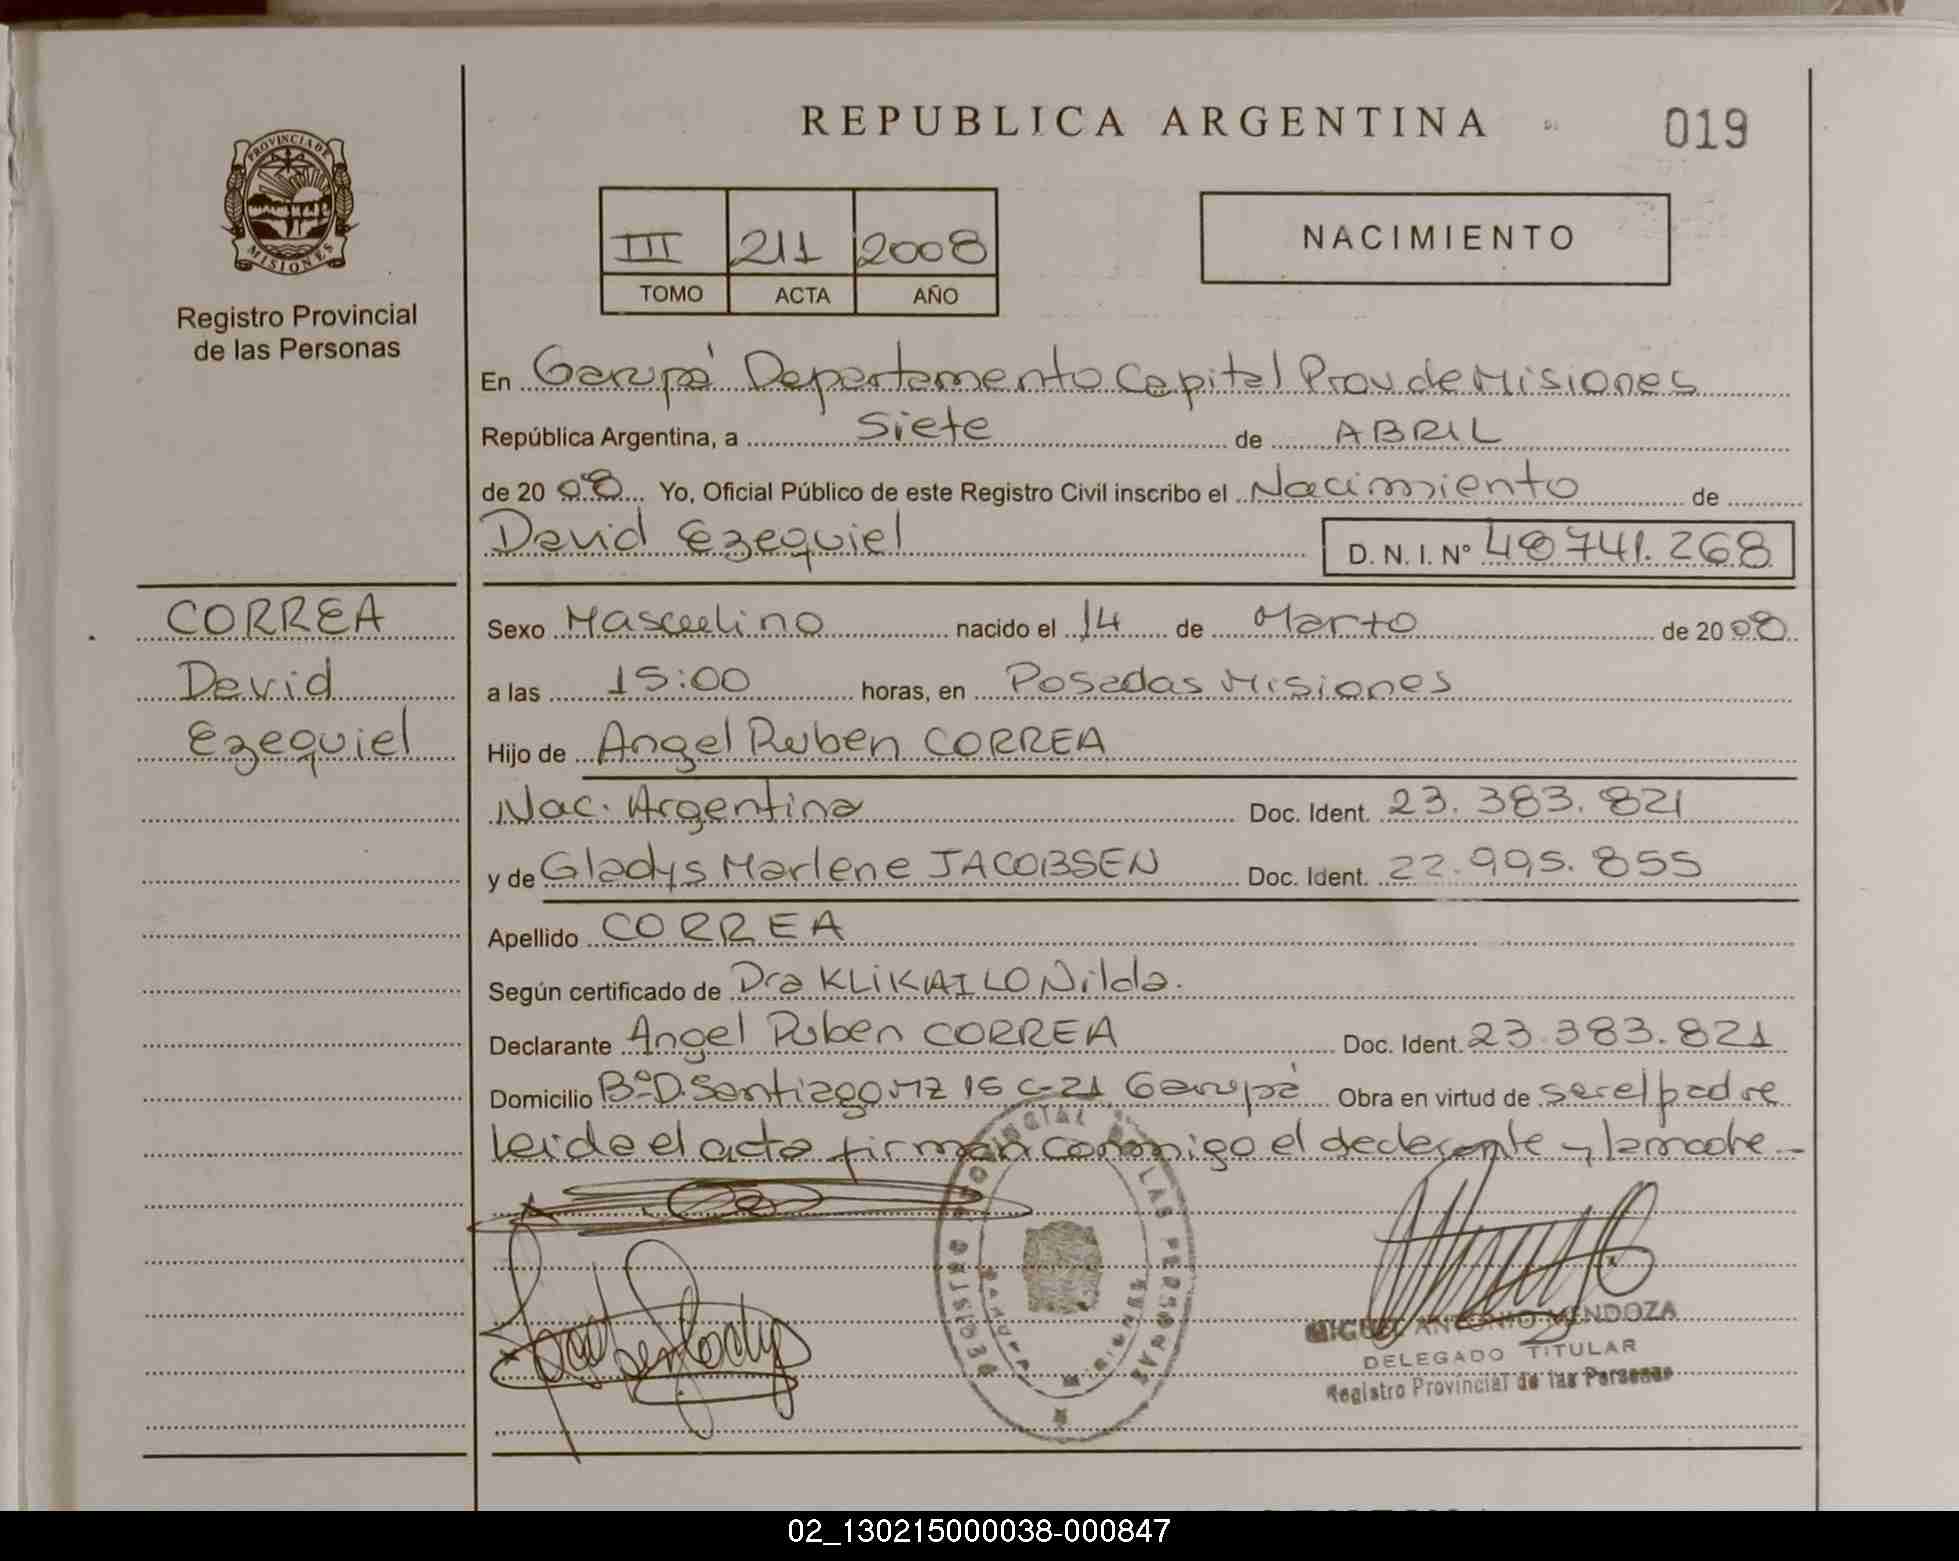 REPUBLICA ARGENTINA
019
PROVINCIA DE
MISIONES
Registro Provincial
de las Personas
III 211 2008
TOMO ACTA AÑO
NACIMIENTO
En Garupá Departamento Capital Prov de Misiones
República Argentina, a Siete de ABRIL
de 2008 Yo, Oficial Público de este Registro Civil inscribo el Nacimiento de
David Ezequiel D. N. I. N° 48741.268
CORREA
David
Ezequiel
Sexo Masculino nacido el 14 de Marzo de 2008
a las 15:00 horas, en Posadas Misiones
Hijo de Angel Ruben CORREA
Nac. Argentina Doc. Ident. 23.383.821
y de Gladys Marlene JACOBSEN Doc. Ident. 22.995.855
Apellido CORREA
Según certificado de Dra KLIKAILO Nilda.
Declarante Angel Ruben CORREA Doc. Ident. 23.383.821
Domicilio B° D. Santiago MZ 15 C-21 Garupá Obra en virtud de ser el padre
leida el acta firman conmigo el declarante y la madre -
MIGUEL ANTONIO MENDOZA
DELEGADO TITULAR
Registro Provincial de las Personas
02_130215000038-000847